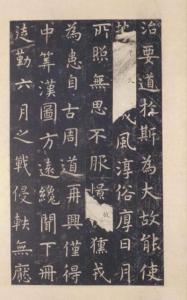 治要道於斯為大故能使
地風淳俗厚日月
所照無思不服憬獯戎
為患自古周道再興僅得
中筭漢圖方遠纔聞下冊
徒勤六月之戰侵軼無厭